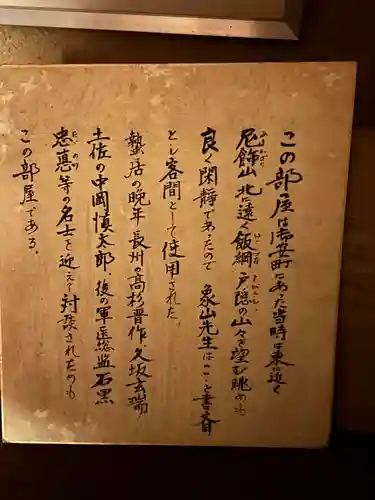 この部屋は御安町にあった当時は東に近く
尼飾山、北に遠く飯綱、戸隠の山々を望む眺めも
良く閑静であったので、象山先生はここを書斎
とし客間として使用された。
蟄居の晩年長州の高杉晋作、久坂玄瑞
土佐の中岡慎太郎、後の軍医総監石黒
忠悳等の名士を迎えて対談されたのも
この部屋である。